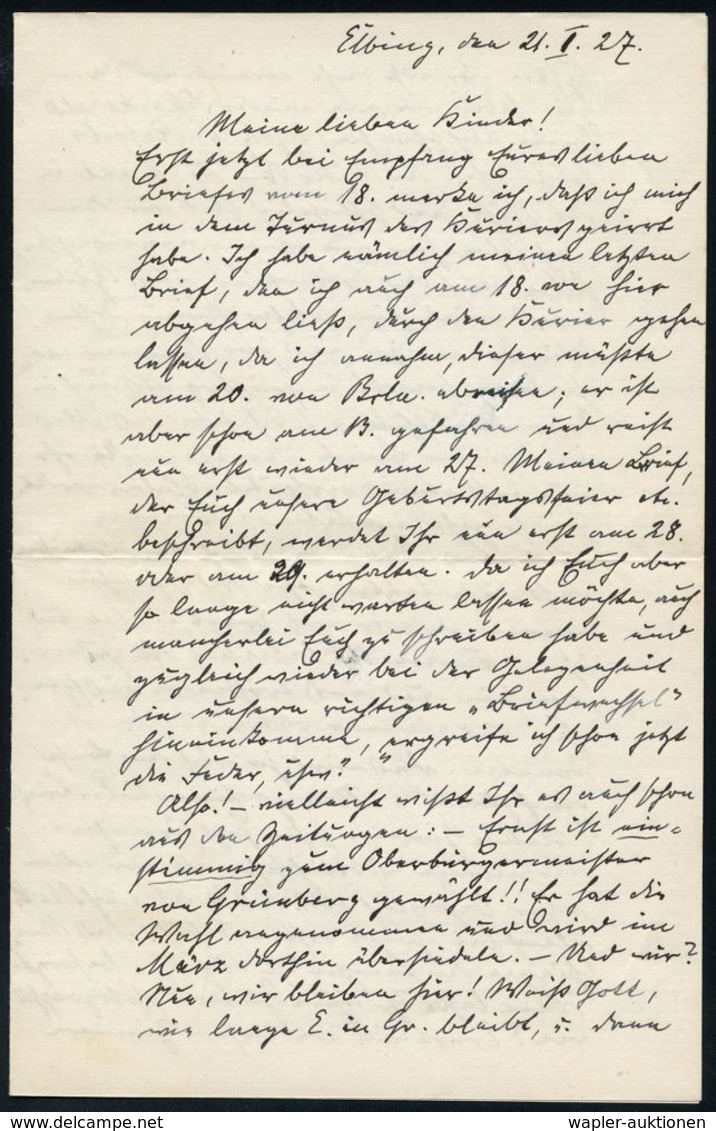 Elbing, den 21. I. 27.
Meine lieben Kinder!
Erst jetzt bei Empfang Eures lieben
Briefes vom 18. merke ich, daß ich mich
in dem Turnus des Kuriers geirrt
habe. Ich habe nämlich meinen letzten
Brief, den ich auch am 18. von hier
abgehen ließ, durch den Kurier gehen
lassen, da ich annahm, dieser müßte
am 20. von Brln. abreisen; er ist
aber schon am 13. gefahren und reist
nun erst wieder am 27. Meinen Brief,
der Euch unsere Geburtstagsfeier etc.
beschreibt, werdet Ihr nun erst am 28.
oder am 29. erhalten. Da ich Euch aber
so lange nicht warten lassen möchte, auch
mancherlei Euch zu schreiben habe und
zugleich wieder bei der Gelegenheit
in unsern richtigen „Briefwechsel"
hineinkomme, „ergreife ich schon jetzt
die Feder, usw."
Also! – vielleicht wißt Ihr es auch schon
aus den Zeitungen: – Ernst ist ein-
stimmig zum Oberbürgermeister
von Grünberg gewählt!! Er hat die
Wahl angenommen und wird im
März dorthin übersiedeln. – Und wir?
Nun, wir bleiben hier! Weiß Gott,
wie lange E. in Gr. bleibt, u. dann
wapler-auktionen